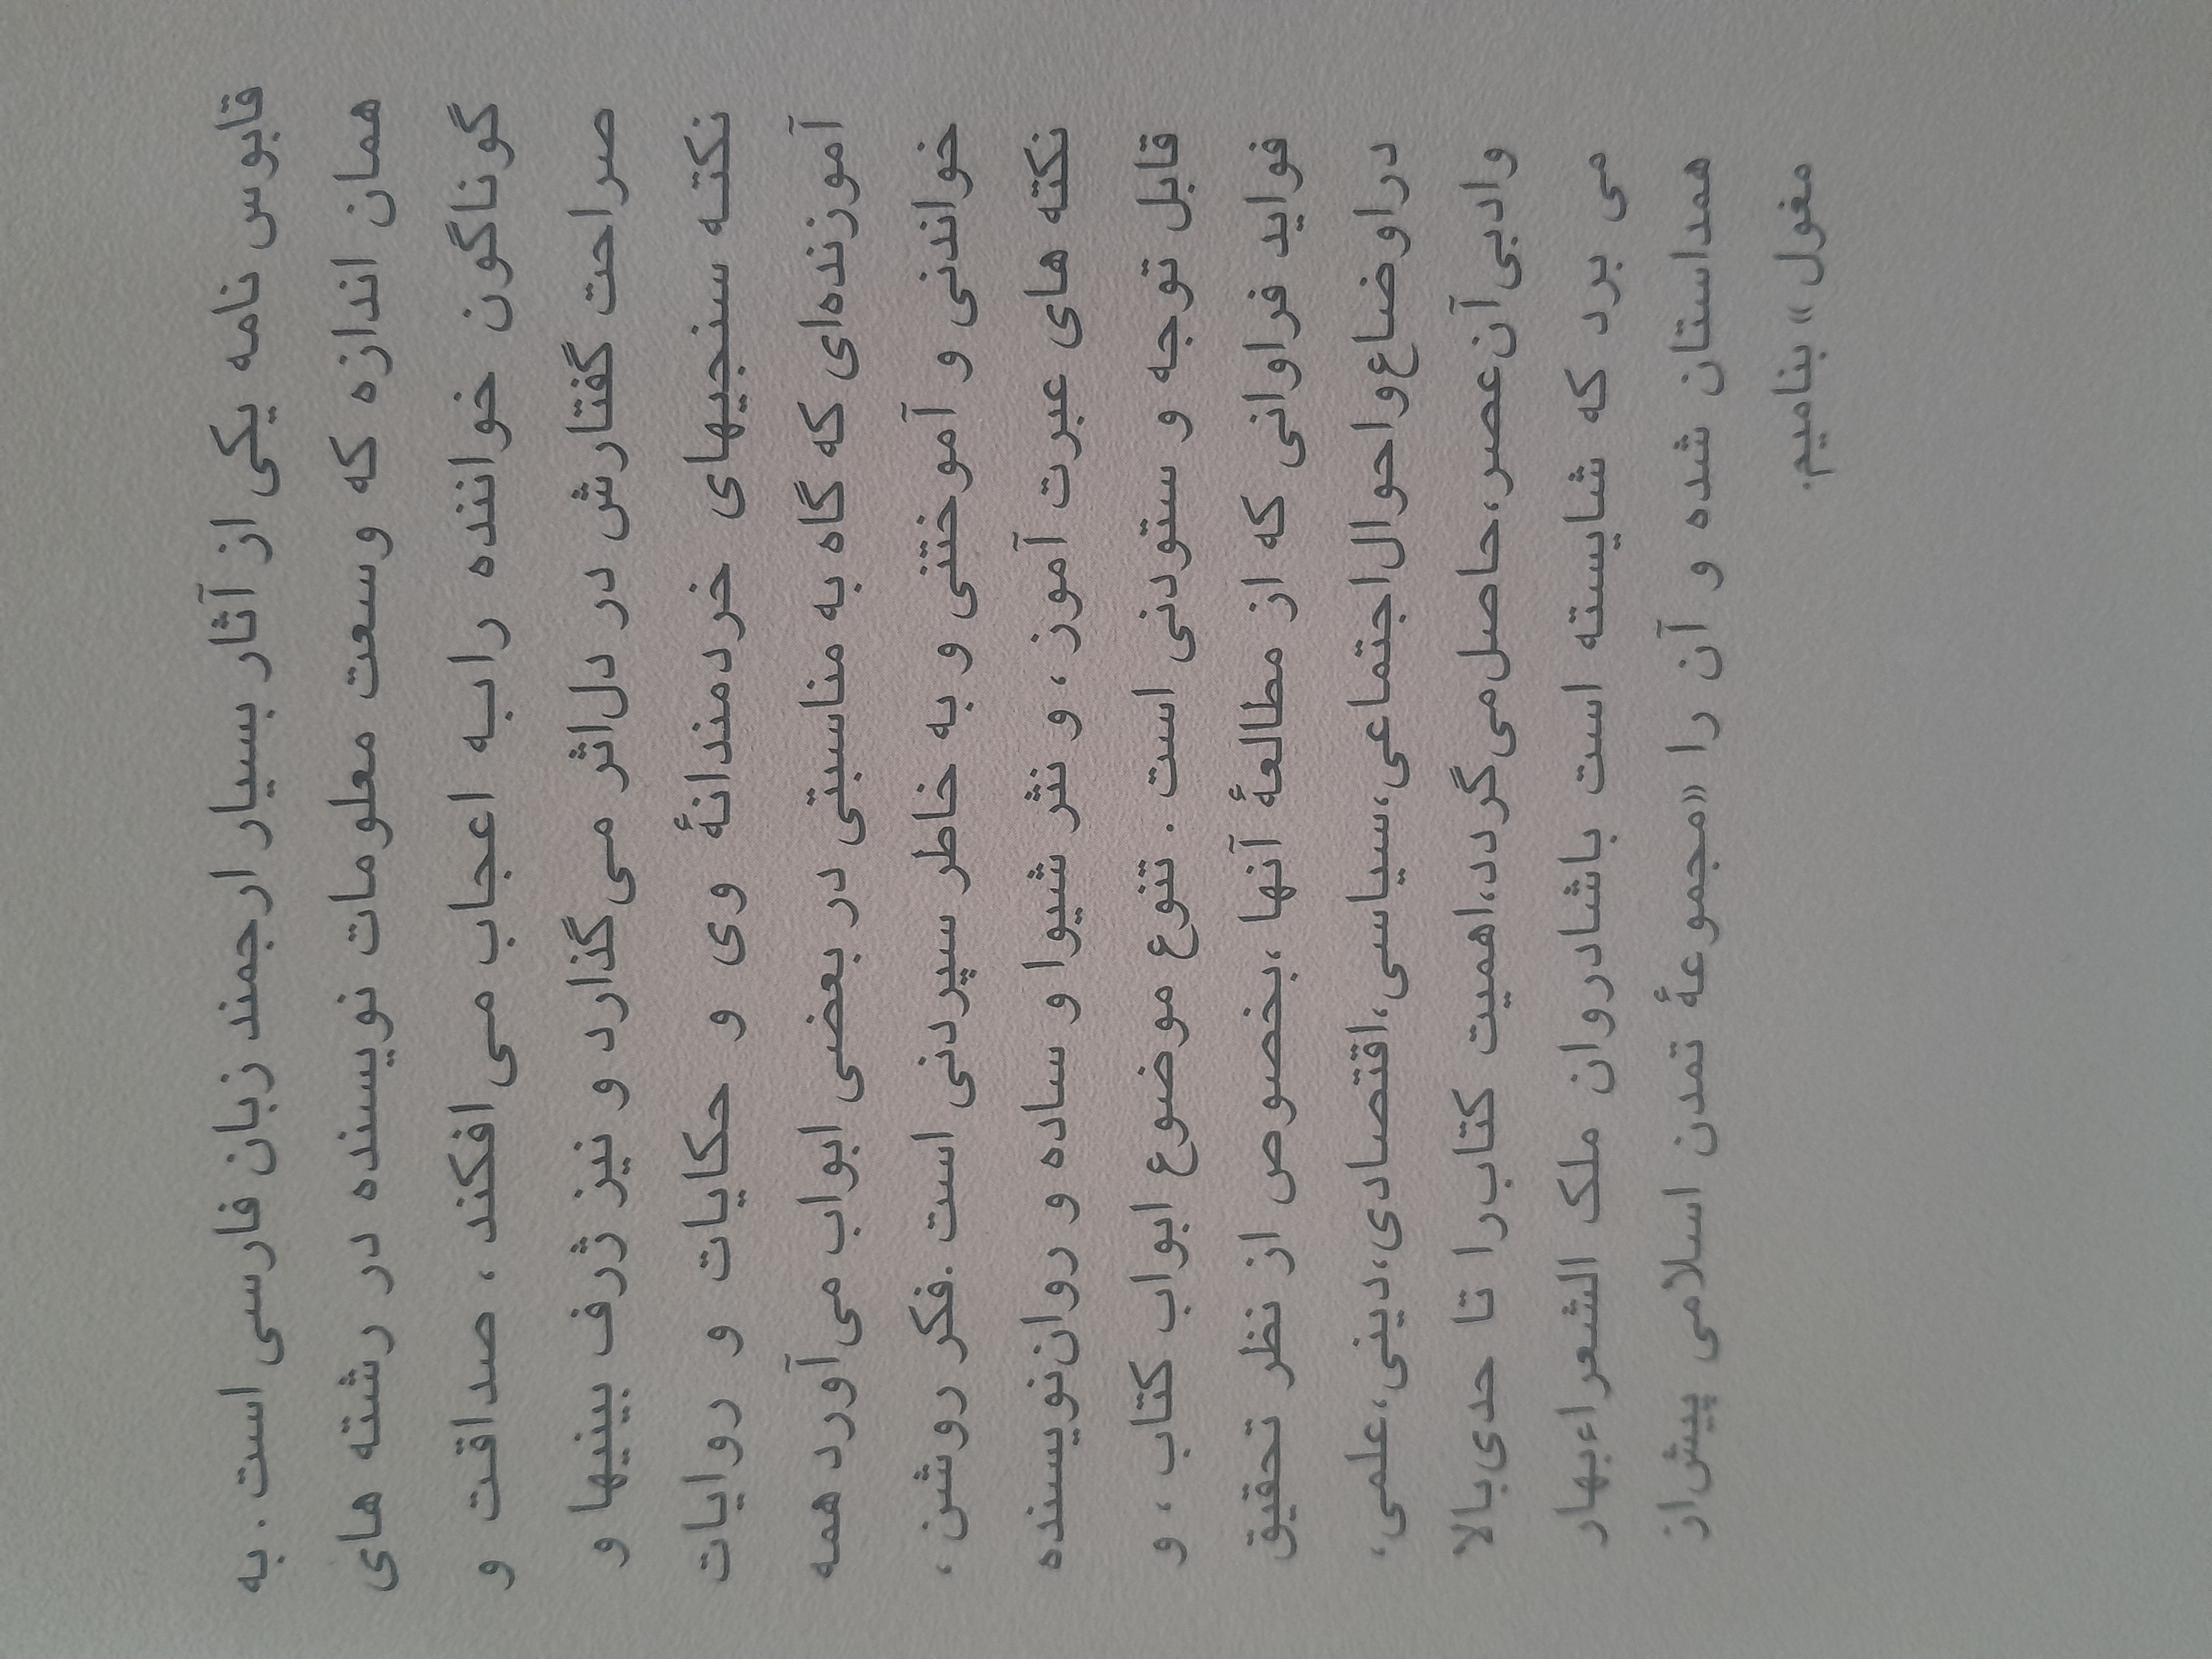 قابوس نامه یکی از آثار بسیار ارجمند زبان فارسی است. به
همان اندازه که وسعت معلومات نویسنده در رشته های
گوناگون خواننده رابه اعجاب می‌افکند، صداقت و
صراحت گفتارش در دل‌اثر می‌گذارد و نیز ژرف بینیها و
نکته سنجیهای خردمندانهٔ وی و حکایات و روایات
آموزنده‌ای که گاه به مناسبتی در بعضی ابواب می‌آورد همه
خواندنی و آموختنی و به خاطر سپردنی است .فکر روشن ،
نکته های عبرت آموز، و نثر شیوا و ساده و روان‌نویسنده
قابل توجه و ستودنی است . تنوع موضوع ابواب کتاب ، و
فواید فراوانی که از مطالعهٔ آنها ،بخصوص از نظر تحقیق
دراوضاع‌واحوال‌اجتماعی،سیاسی،اقتصادی،دینی،علمی،
وادبی‌آن‌عصر،حاصل‌می‌گردد،اهمیت کتاب‌را تا حدی‌بالا
می برد که شایسته است باشادروان ملک الشعراءبهار
همداستان شده و آن را «مجموعهٔ تمدن اسلامی پیش‌از
مغول» بنامیم.